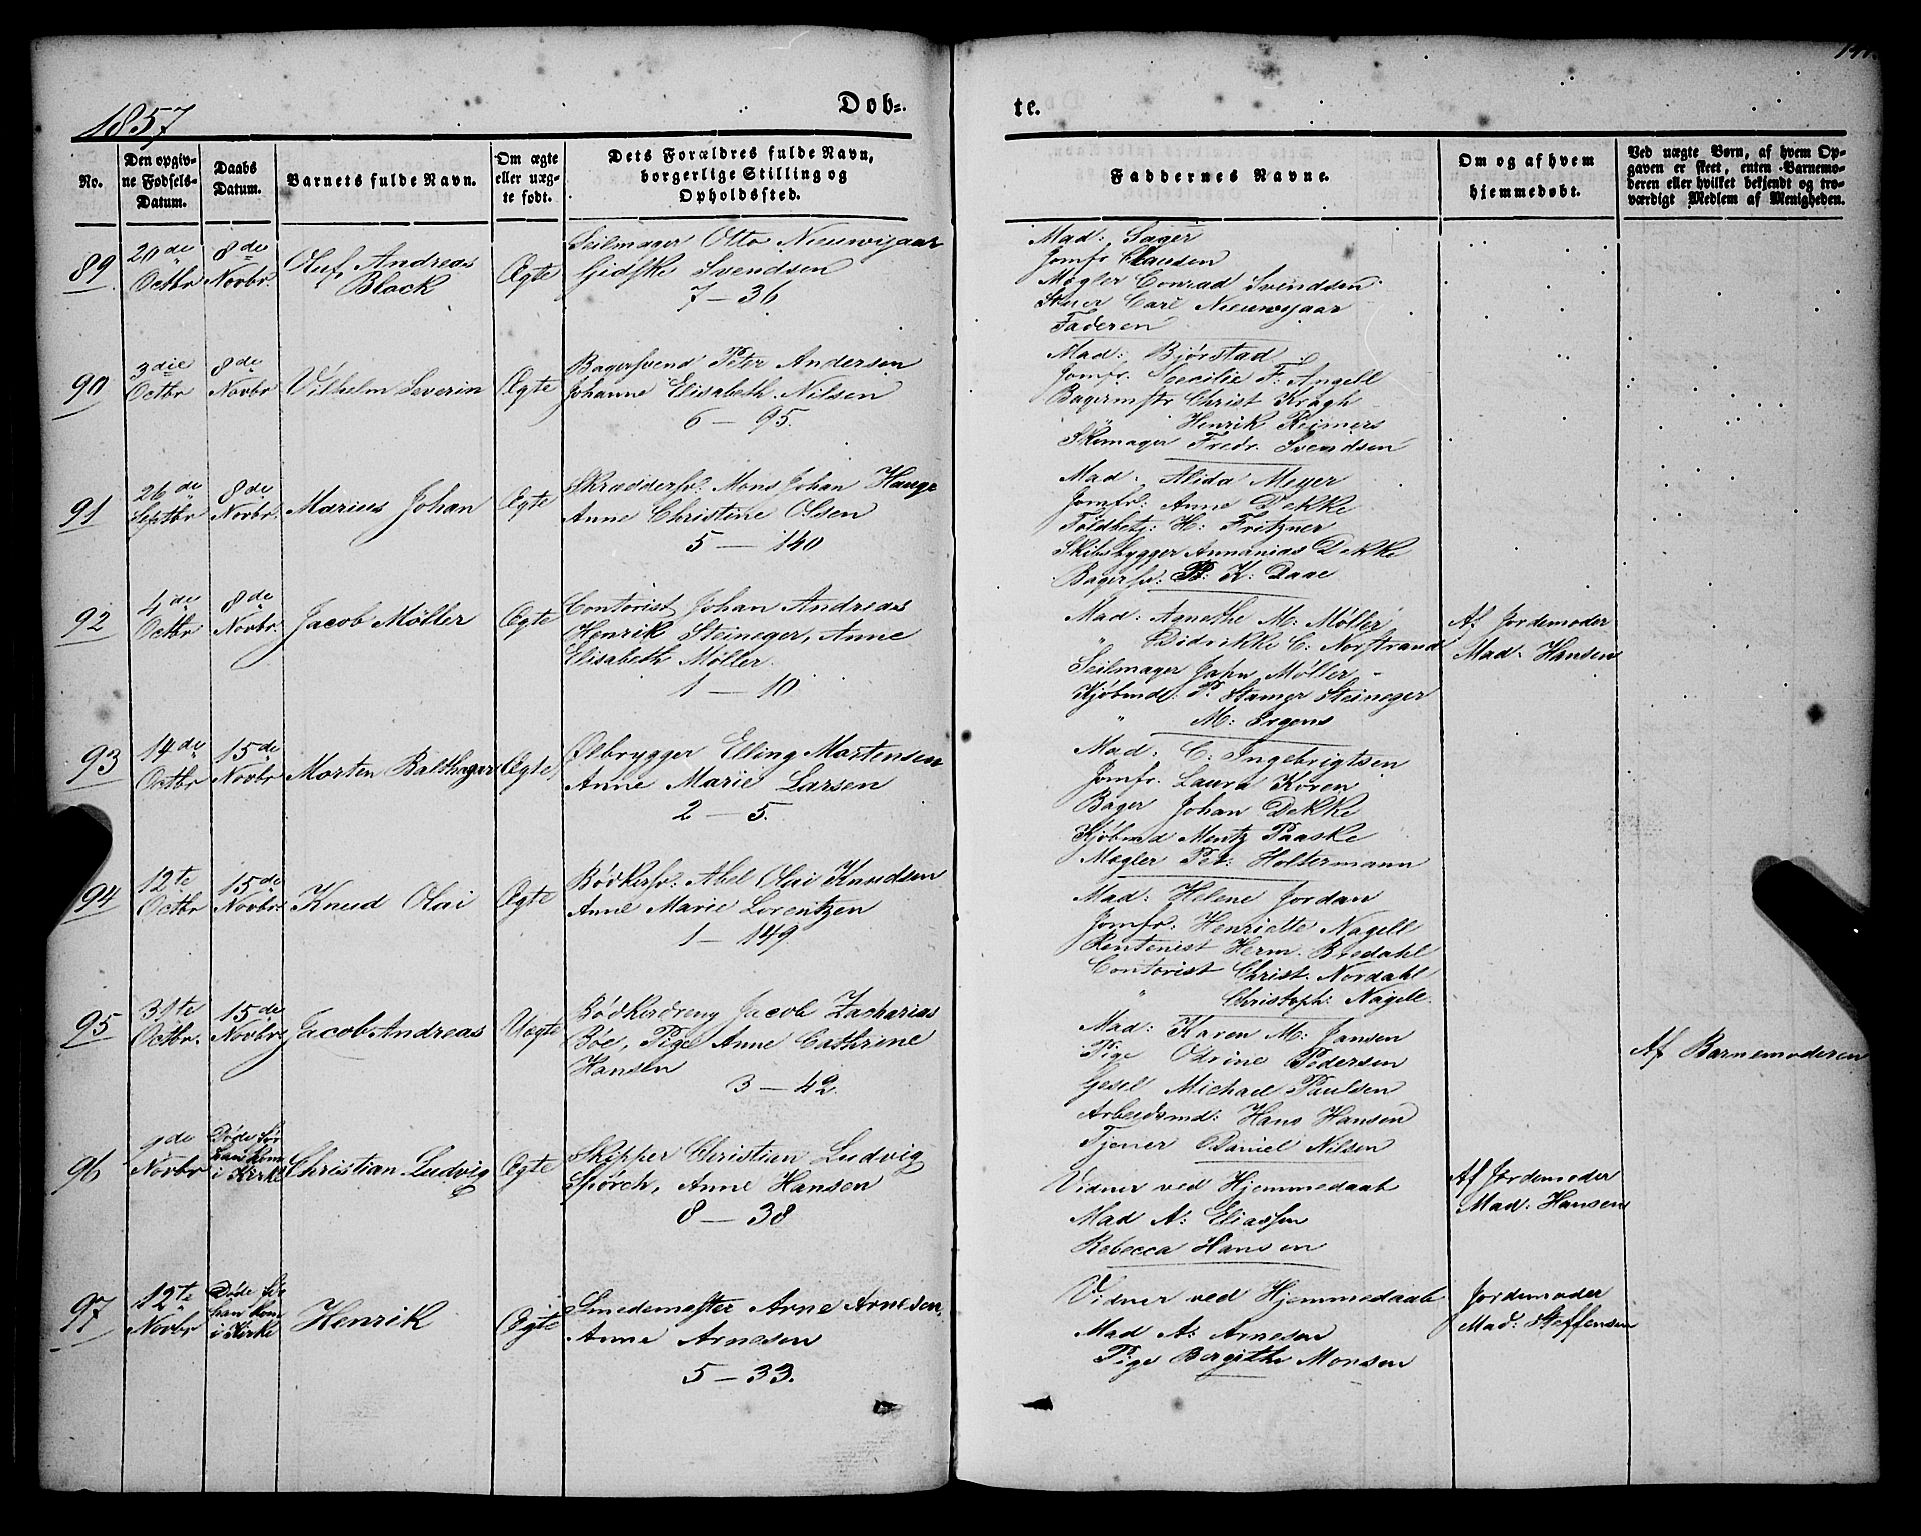 1857
Døb=
No.
Den opgiv-
ne Fødsels-
Datum.
Daabs
Datum.
Barnets fulde Navn.
Om ægte
eller uæg-
te født.
Dets Forældres fulde Navn,
borgerlige Stilling og
Opholdssted.
89
20de Octbr
8de Novbr.
Oluf Andreas
Block
Ægte
Seilmager Otto Nieuwejaar
Gidske Svendsen
7 — 36
90
3die Octbr
8de Novbr
Vilhelm Severin
Ægte
Bagersvend Peter Andersen
Johanne Elisabeth Nilsen
6 — 95.
91
26de Septbr
8de Novbr.
Marius Johan
Ægte
Skræddersv. Mons Johan Hauge
Anne Christine Olsen
5 — 140
92
4de Octbr
8de Novbr.
Jacob Møller
Ægte
Contorist Johan Andreas
Henrik Steineger, Anne
Elisabeth Møller.
1 — 10
93
14de Octbr
15de Novbr
Morten Balthazar
Ægte
Ølbrygger Elling Mortensen
Anne Marie Larsen
2 — 5.
94
12te Octbr
15de Novbr.
Knud Olai
Ægte
Bødkersv. Abel Olai Knudsen
Anne Marie Lorentzen
1 — 149
95
31te Octbr.
15de Novbr.
Jacob Andreas
Uægte
Bødkerdreng Jacob Zacharias
Bøe, Pige Anne Cathrine
Hansen
3 — 42.
96
9de Novbr
Døde før
han kom
i Kirke
Christian Ludvig
Ægte
Skipper Christian Ludvig
Spørch, Anne Hansen
8 — 38
97
12te Novbr
Døde før
han kom
i Kirke
Henrik
Ægte
Smedemester Arne Arnesen,
Anne Arnesen
5 — 33.
te.
Faddernes Navne.
Om og af hvem
hjemmedøbt.
Ved uægte Børn, af hvem Op-
gaven er skeet, enten Barnemo-
deren eller hvilket bekjendt og tro-
værdigt Medlem af Menigheden.
Mad: Sager
Jomfr Clausen
Mægler Conrad Svendsen
Carl Nieuwejaar
Faderen
Mad: Bjørstad
Jomfr. Cecilie F. Angell
Bagermstr Christ Kragh
" Henrik Reimers
Skomager Fredr. Svendsen
Mad. Alida Meyer
Jomfr: Anne Dekke
Toldbetj: H: Fritzner
Skibsbygger Annanias Dekke
Bagersv. P: K: Daae
Mad: Agnethe M: Møller
" Didrikke C. Norstrand
Seilmager Møller
Kjøbmd: P. Stamer Steineger
" M: Irgens
Af Jordemoder
Mad. Hansen
Mad: C. Ingebrigtsen
Jomfr. Laura Koren
Bager Johan Dekke
Kjøbmd Mentz Paaske
Mægler Pet: Holtermann
Mad: Helene Jordan
Jomfr: Henriette Nagell
Rentenist Herm. Bredahl
Contorist Christ. Nordahl
" Christoph: Nagell.
Mad: Karen M: Jansen
Pige Olvine Pedersen
Gesel Michael Paulsen
Arbeidsmd: Hans Hansen
Tjener Daniel Nilsen
Af Barnemoderen
Vidner ved Hjemmedaab
Mad A: Eliassen
Rebecca Hansen
Af Jordemoder
Mad. Hansen
Vidner ved Hjemmedaab
Mad A: Arnesen
Pige Bergithe Monsen
Jordemoder
Mad: Steffensen